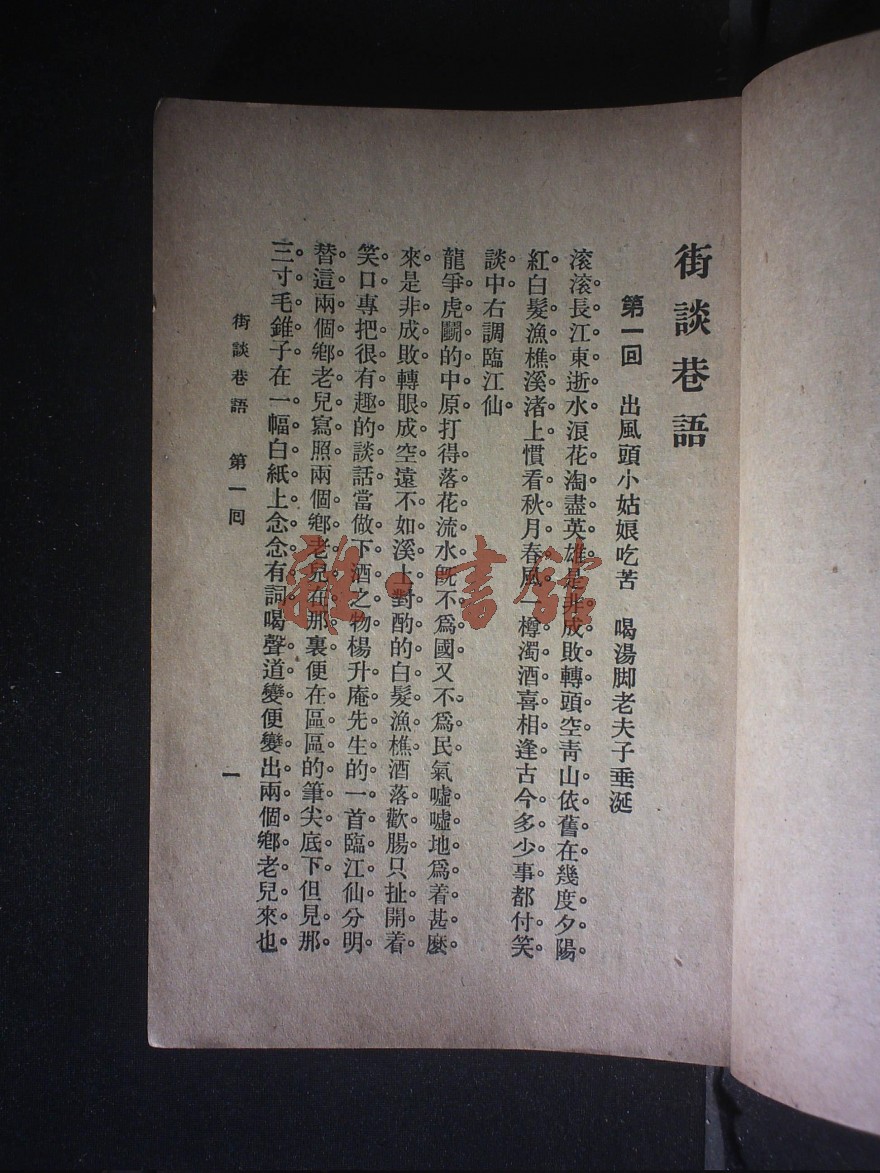 街談巷語
第一回　出風頭小姑娘吃苦　喝湯脚老夫子垂涎
滾滾長江東逝水浪花淘盡英雄是非成敗轉頭空青山依舊在幾度夕陽
紅白髮漁樵溪渚上慣看秋月春風一樽濁酒喜相逢古今多少事都付笑
談中右調臨江仙
龍爭虎鬭的中原打得落花流水旣不爲國又不爲民氣噓噓地爲着甚麼
來是非成敗轉眼成空遠不如溪上對酌的白髮漁樵酒落歡腸只扯開着
笑口專把很有趣的談話當做下酒之物楊升庵先生的一首臨江仙分明
替這兩個鄉老兒寫照兩個鄉老兒在那裏便在區區的筆尖底下但見那
三寸毛錐子在一幅白紙上念念有詞喝聲道變便變出兩個鄉老兒來也
街談巷語　第一回
一
雜·書館